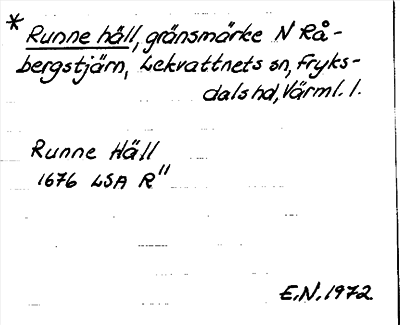 * Runne häll, gränsmärke N Rå-
bergstjärn, Lekvattnets sn, Fryks-
dals hd, Värml. l.
Runne Häll
1676 LSA R"
E.N. 1972.